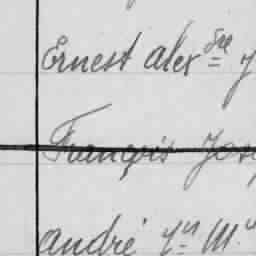 Ernest alex dre J
François Jos
andré Jn M